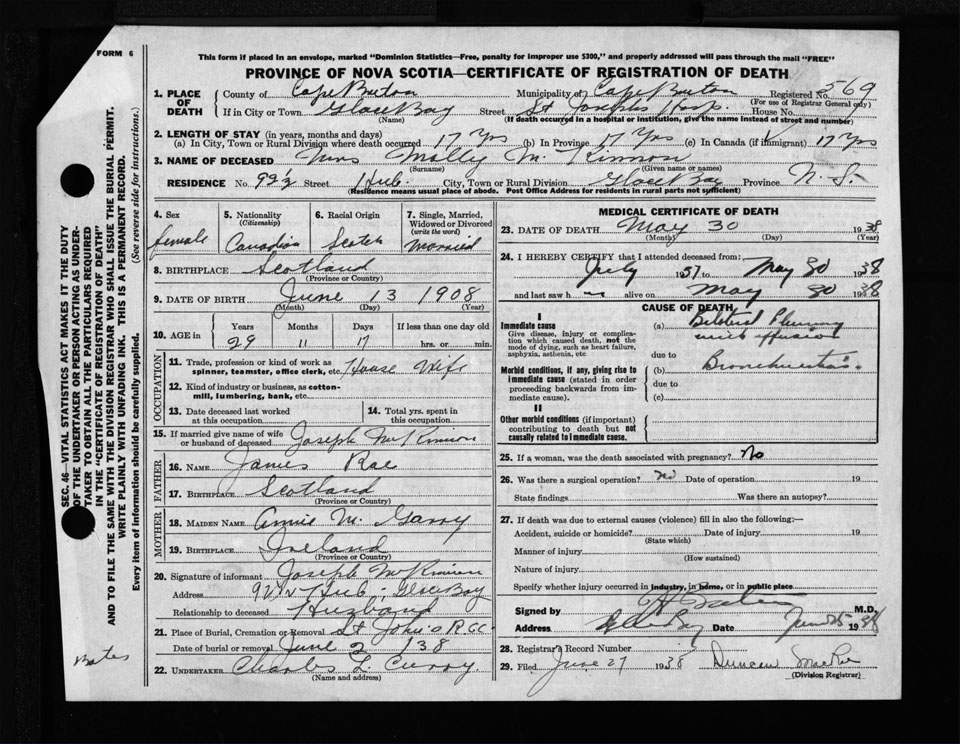 FORM 6
This form if placed in an envelope, marked "Dominion Statistics—Free, penalty for improper use $300," and properly addressed will pass through the mail "FREE"
PROVINCE OF NOVA SCOTIA—CERTIFICATE OF REGISTRATION OF DEATH
1. PLACE OF DEATH
County of Cape Breton Municipality of Cape Breton Registered No. 569
(For use of Registrar General only)
If in City or Town Glace Bay Street St Josephs Hosp. House No.
(Name) (If death occurred in a hospital or institution, give the name instead of street and number)
2. LENGTH OF STAY (in years, months and days)
(a) In City, Town or Rural Division where death occurred 17 Yrs (b) In Province 17 Yrs (c) In Canada (if immigrant) 17 Yrs
3. NAME OF DECEASED Mrs Molly Mc Kinnon
(Surname) (Given name or names)
RESIDENCE No. 92½ Street Hub City, Town or Rural Division Glace Bay Province N. S.
(Residence means usual place of abode. Post Office Address for residents in rural parts not sufficient)
4. Sex female
5. Nationality (Citizenship) Canadian
6. Racial Origin Scotch
7. Single, Married, Widowed or Divorced (write the word) Married
8. BIRTHPLACE Scotland
(Province or Country)
9. DATE OF BIRTH June 13 1908
(Month) (Day) (Year)
10. AGE in Years 29 Months 11 Days 17 If less than one day old hrs. or min.
OCCUPATION
11. Trade, profession or kind of work as spinner, teamster, office clerk, etc. House Wife
12. Kind of industry or business, as cotton-mill, lumbering, bank, etc.
13. Date deceased last worked at this occupation
14. Total yrs. spent in this occupation
15. If married give name of wife or husband of deceased Joseph McKinnon
FATHER
16. NAME James Rae
17. BIRTHPLACE Scotland
(Province or Country)
MOTHER
18. MAIDEN NAME Annie Mc Garry
19. BIRTHPLACE Ireland
(Province or Country)
20. Signature of informant Joseph McKinnon
Address 92½ Hub - Glace Bay
Relationship to deceased Husband
21. Place of Burial, Cremation or Removal St John's R CC
Date of burial or removal June 2 / 38
22. UNDERTAKER Charles L Curry
(Name and address)
MEDICAL CERTIFICATE OF DEATH
23. DATE OF DEATH May 30 1938
(Month) (Day) (Year)
24. I HEREBY CERTIFY that I attended deceased from:
July 1937 to May 30 1938
and last saw h alive on May 30 1938
CAUSE OF DEATH
I
Immediate cause
Give disease, injury or complication which caused death, not the mode of dying, such as heart failure, asphyxia, asthenia, etc
(a) Bilateral Pleurisy with effusion
due to
Morbid conditions, if any, giving rise to immediate cause (stated in order proceeding backwards from immediate cause).
(b) Bronchiectasis
due to
(c)
II
Other morbid conditions (if important) contributing to death but not causally related to immediate cause.
25. If a woman, was the death associated with pregnancy? No
26. Was there a surgical operation? No Date of operation 19
State findings Was there an autopsy?
27. If death was due to external causes (violence) fill in also the following:—
Accident, suicide or homicide? Date of injury 19
(State which)
Manner of injury
(How sustained)
Nature of injury
Specify whether injury occurred in industry, in home, or in public place
Signed by M.D.
Address Glace Bay Date June 25 1938
28. Registrar's Record Number
29. Filed June 27 1938 Duncan MacRae
(Division Registrar)
SEC. 46—VITAL STATISTICS ACT MAKES IT THE DUTY
OF THE UNDERTAKER OR PERSON ACTING AS UNDER-
TAKER TO OBTAIN ALL THE PARTICULARS REQUIRED
IN THE "CERTIFICATE OF REGISTRATION OF DEATH"
AND TO FILE THE SAME WITH THE DIVISION REGISTRAR WHO SHALL ISSUE THE BURIAL PERMIT.
WRITE PLAINLY WITH UNFADING INK. THIS IS A PERMANENT RECORD.
Every item of information should be carefully supplied. (See reverse side for instructions.)